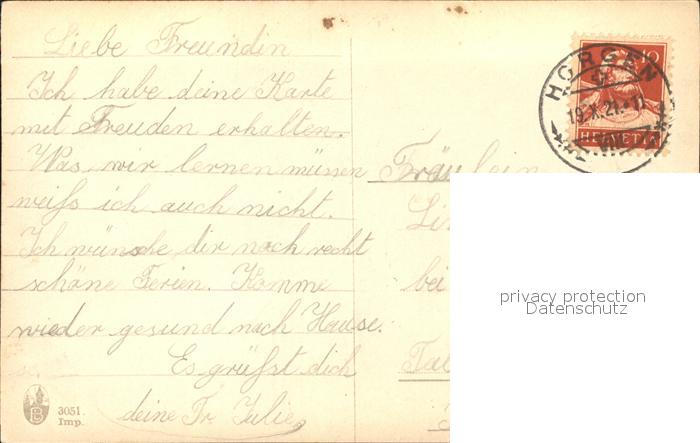 Liebe Freundin
Ich habe deine Karte
mit Freuden erhalten.
Was wir lernen müssen
weiss ich auch nicht.
Ich wünsche dir noch recht
schöne Ferien. Komme
wieder gesund nach Hause.
Es grüsst dich
deine Fr. Julie
3051.
Imp.
HORGEN
19.X.21.-11
VIII
10
HELVETIA
Fräulein
bei
privacy protection
Datenschutz